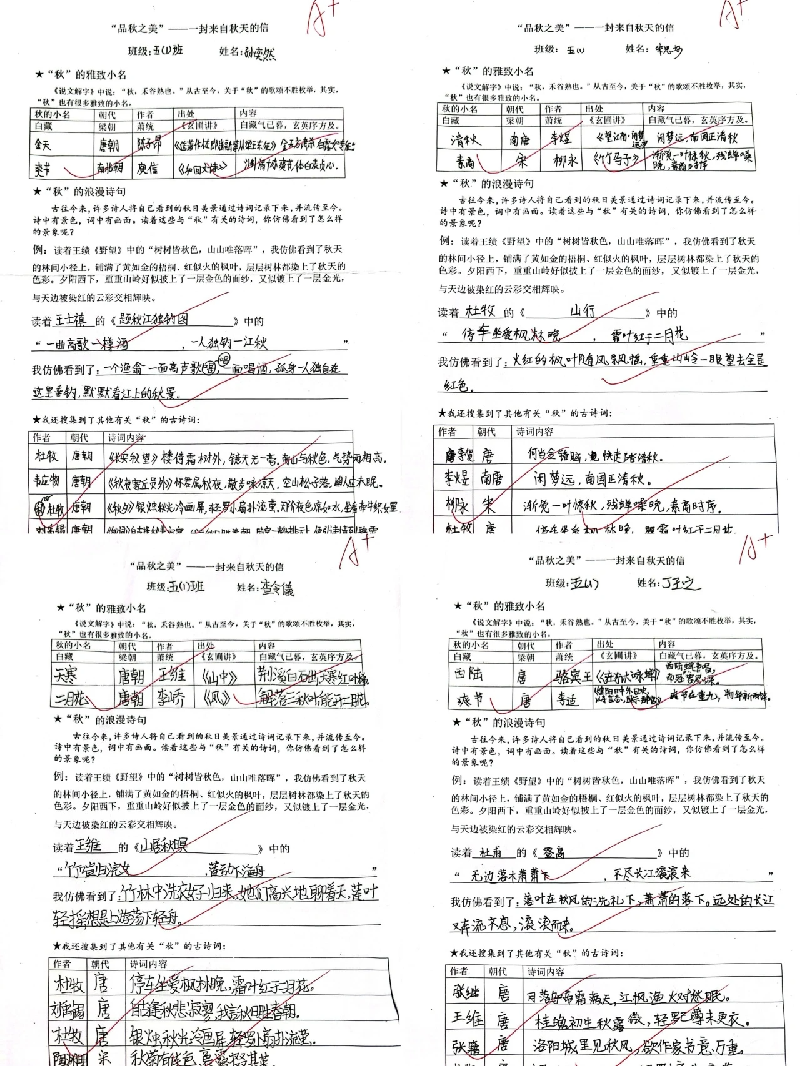 A+
“品秋之美”——一封来自秋天的信
班级:五(1)班 姓名:
★“秋”的雅致小名
《说文解字》中说:“秋,禾谷熟也。”从古至今,关于“秋”的歌颂不胜枚举,其实,
“秋”也有很多雅致的小名。
秋的小名 朝代 作者 出处 内容
白藏 梁朝 萧统 《玄圃讲》 白藏气已暮,玄英序方及。
金天 唐朝 陈子昂
爽节 南北朝 庾信
★“秋”的浪漫诗句
古往今来,许多诗人将自己看到的秋日美景通过诗词记录下来,并流传至今。
诗中有景色,词中有画面。读着这些与“秋”有关的诗词,你仿佛看到了怎么样
的景象呢?
例:读着王绩《野望》中的“树树皆秋色,山山唯落晖”,我仿佛看到了秋天
的林间小径上,铺满了黄如金的梧桐、红似火的枫叶,层层树都染上了秋天的
色彩。夕阳西下,重重山岭好似披上了一层金色的面纱,又似镀上了一层金光,
与天边被染红的云彩交相辉映。
读着王士禛的《题秋江独钓图》中的
“一曲高歌一樽酒,一人独钓一江秋”
我仿佛看到了:一个渔翁一面高声歌唱,一面喝酒,孤身一人独自在
这里垂钓,默默看江上的秋景。
★我还搜集到了其他有关“秋”的古诗词:
作者 朝代 诗词内容
杜牧 唐朝 《长安秋望》楼倚霜树外,镜天无一毫。南山与秋色,气势两相高。
韦应物 唐朝 怀君属秋夜,散步咏凉天。空山松子落,幽人应未眠。
杜牧 唐朝 《秋夕》银烛秋光冷画屏,轻罗小扇扑流萤。天阶夜色凉如水,坐看牵牛织女星。
A+
“品秋之美”——一封来自秋天的信
班级:五(1) 姓名:
★“秋”的雅致小名
《说文解字》中说:“秋,禾谷熟也。”从古至今,关于“秋”的歌颂不胜枚举,其实,
“秋”也有很多雅致的小名。
秋的小名 朝代 作者 出处 内容
白藏 梁朝 萧统 《玄圃讲》 白藏气已暮,玄英序方及。
清秋 南唐 李煜 闲梦远,南国正清秋
素商 宋 柳永 《竹马子》 渐觉一叶惊秋,残蝉噪晚,素商时序
★“秋”的浪漫诗句
古往今来,许多诗人将自己看到的秋日美景通过诗词记录下来,并流传至今。
诗中有景色,词中有画面。读着这些与“秋”有关的诗词,你仿佛看到了怎么样
的景象呢?
例:读着王绩《野望》中的“树树皆秋色,山山唯落晖”,我仿佛看到了秋天
的林间小径上,铺满了黄如金的梧桐、红似火的枫叶,层层树都染上了秋天的
色彩。夕阳西下,重重山岭好似披上了一层金色的面纱,又似镀上了一层金光,
与天边被染红的云彩交相辉映。
读着杜牧的《山行》中的
“停车坐爱枫林晚,霜叶红于二月花”
我仿佛看到了:火红的枫叶随风
红色。
★我还搜集到了其他有关“秋”的古诗词:
作者 朝代 诗词内容
唐 何当金络脑,快走踏清秋。
李煜 南唐 闲梦远,南国正清秋。
柳永 宋 渐觉一叶惊秋,残蝉噪晚,素商时序。
杜牧 唐 停车坐爱枫林晚,霜叶红于二月花
A+
“品秋之美”——一封来自秋天的信
班级:五(1)班 姓名:
★“秋”的雅致小名
《说文解字》中说:“秋,禾谷熟也。”从古至今,关于“秋”的歌颂不胜枚举,其实,
“秋”也有很多雅致的小名。
秋的小名 朝代 作者 出处 内容
白藏 梁朝 萧统 《玄圃讲》 白藏气已暮,玄英序方及。
天寒 唐朝 王维 《山中》 荆溪白石出,天寒红叶稀
二月花 唐朝 李峤 《风》 解落三秋叶,能开二月花。
★“秋”的浪漫诗句
古往今来,许多诗人将自己看到的秋日美景通过诗词记录下来,并流传至今。
诗中有景色,词中有画面。读着这些与“秋”有关的诗词,你仿佛看到了怎么样
的景象呢?
例:读着王绩《野望》中的“树树皆秋色,山山唯落晖”,我仿佛看到了秋天
的林间小径上,铺满了黄如金的梧桐、红似火的枫叶,层层树都染上了秋天的
色彩。夕阳西下,重重山岭好似披上了一层金色的面纱,又似镀上了一层金光,
与天边被染红的云彩交相辉映。
读着王维的《山居秋暝》中的
“竹喧归浣女,莲动下渔舟”
我仿佛看到了:竹林中洗衣女子归来,她们高兴地聊着天,莲叶
轻摇
★我还搜集到了其他有关“秋”的古诗词:
作者 朝代 诗词内容
杜牧 唐 停车坐爱枫林晚,霜叶红于二月花。
刘禹锡 唐 自古逢秋悲寂寥,我言秋日胜春朝。
杜牧 唐 银烛秋光冷画屏,轻罗小扇扑流萤。
A+
“品秋之美”——一封来自秋天的信
班级:五(1) 姓名:
★“秋”的雅致小名
《说文解字》中说:“秋,禾谷熟也。”从古至今,关于“秋”的歌颂不胜枚举,其实,
“秋”也有很多雅致的小名。
秋的小名 朝代 作者 出处 内容
白藏 梁朝 萧统 《玄圃讲》 白藏气已暮,玄英序方及。
西陆 唐 骆宾王 《在狱咏蝉》
爽节 唐 李适
★“秋”的浪漫诗句
古往今来,许多诗人将自己看到的秋日美景通过诗词记录下来,并流传至今。
诗中有景色,词中有画面。读着这些与“秋”有关的诗词,你仿佛看到了怎么样
的景象呢?
例:读着王绩《野望》中的“树树皆秋色,山山唯落晖”,我仿佛看到了秋天
的林间小径上,铺满了黄如金的梧桐、红似火的枫叶,层层树都染上了秋天的
色彩。夕阳西下,重重山岭好似披上了一层金色的面纱,又似镀上了一层金光,
与天边被染红的云彩交相辉映。
读着杜甫的《登高》中的
“无边落木萧萧下,不尽长江滚滚来”
我仿佛看到了:落叶在秋风的洗礼下,萧萧的落下。远处的长江
又奔流不息,滚滚而来。
★我还搜集到了其他有关“秋”的古诗词:
作者 朝代 诗词内容
张继 唐 月落乌啼霜满天,江枫渔火对愁眠。
王维 唐 桂魄初生秋露微,轻罗已薄未更衣。
张籍 唐 洛阳城里见秋风,欲作家书意万重。